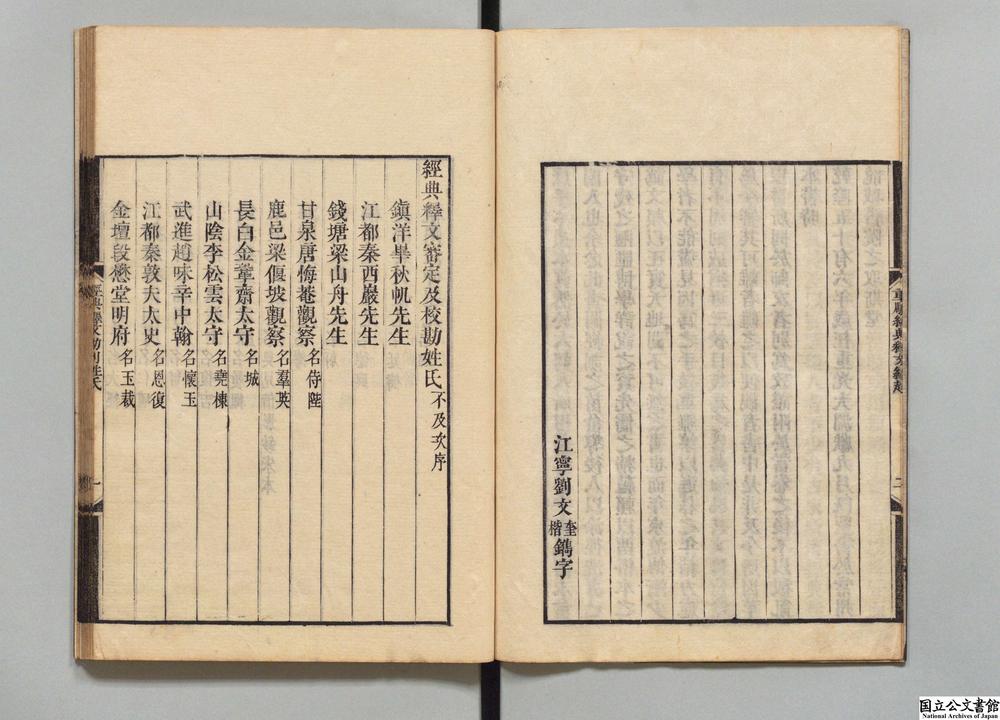 重雕經典釋文緣起
二
江寧劉文奎楷鐫字
經典釋文審定及校勘姓氏不及次序
鎭洋畢秋帆先生
江都秦西巖先生
錢塘梁山舟先生
甘泉唐悔菴觀察名侍陛
鹿邑梁偃坡觀察名羣英
長白金𩋾齋太守名城
山陰李松雲太守名堯棟
武進趙味辛中翰名懷玉
江都秦敦夫太史名恩復
金壇段懋堂明府名玉裁
一
国立公文書館
National Archives of Japan